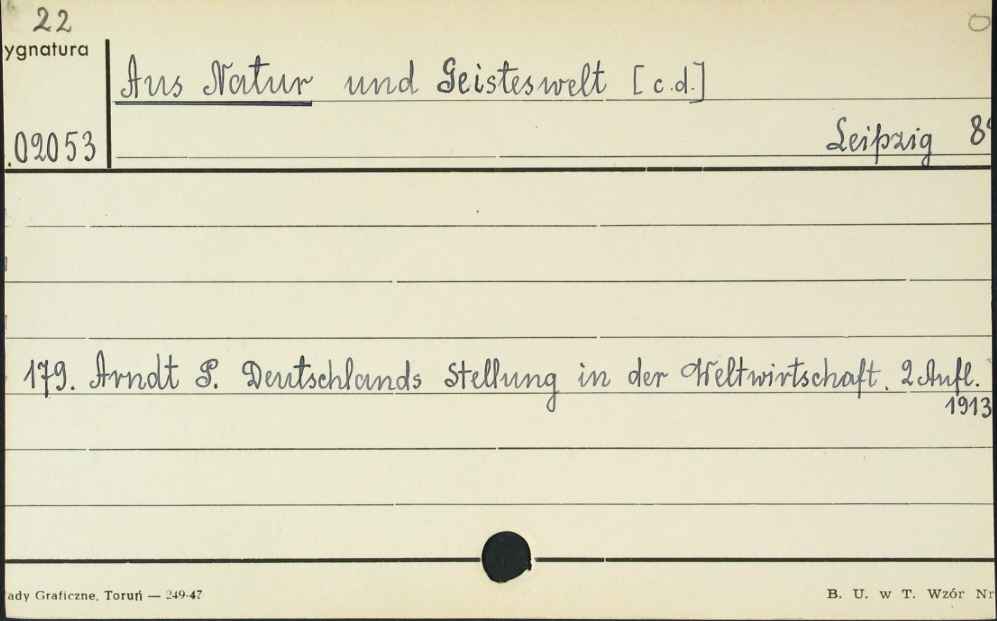 22
ygnatura
Aus Natur und Geisteswelt [c.d.]
.02053
Leipzig 8°
179. Arndt P. Deutschlands Stellung in der Weltwirtschaft. 2 Aufl.
1913
ady Graficzne, Toruń — 249-47
B. U. w T. Wzór Nr